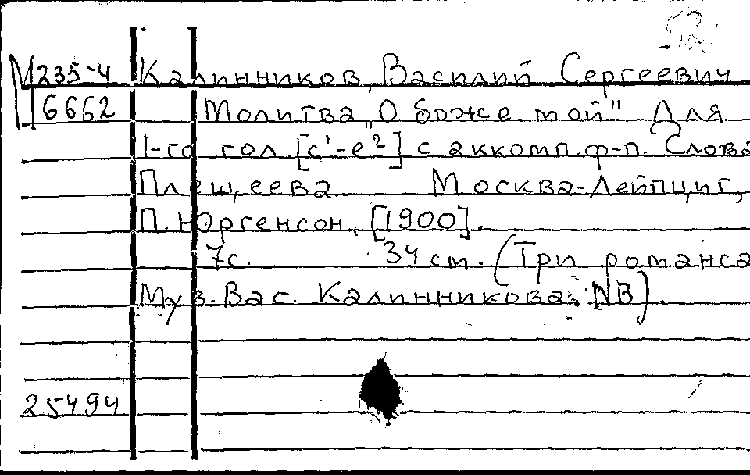 М 235-4 Калинников, Василий Сергеевич
6662 Молитва „О боже мой" Для
1-го гол. [c¹-e²] с аккомп. ф-п. Слова
Плещеева Москва-Лейпциг,
П. Юргенсон, [1900].
7с. 34 см. (Три романса
Муз. Вас. Калинникова.
25494